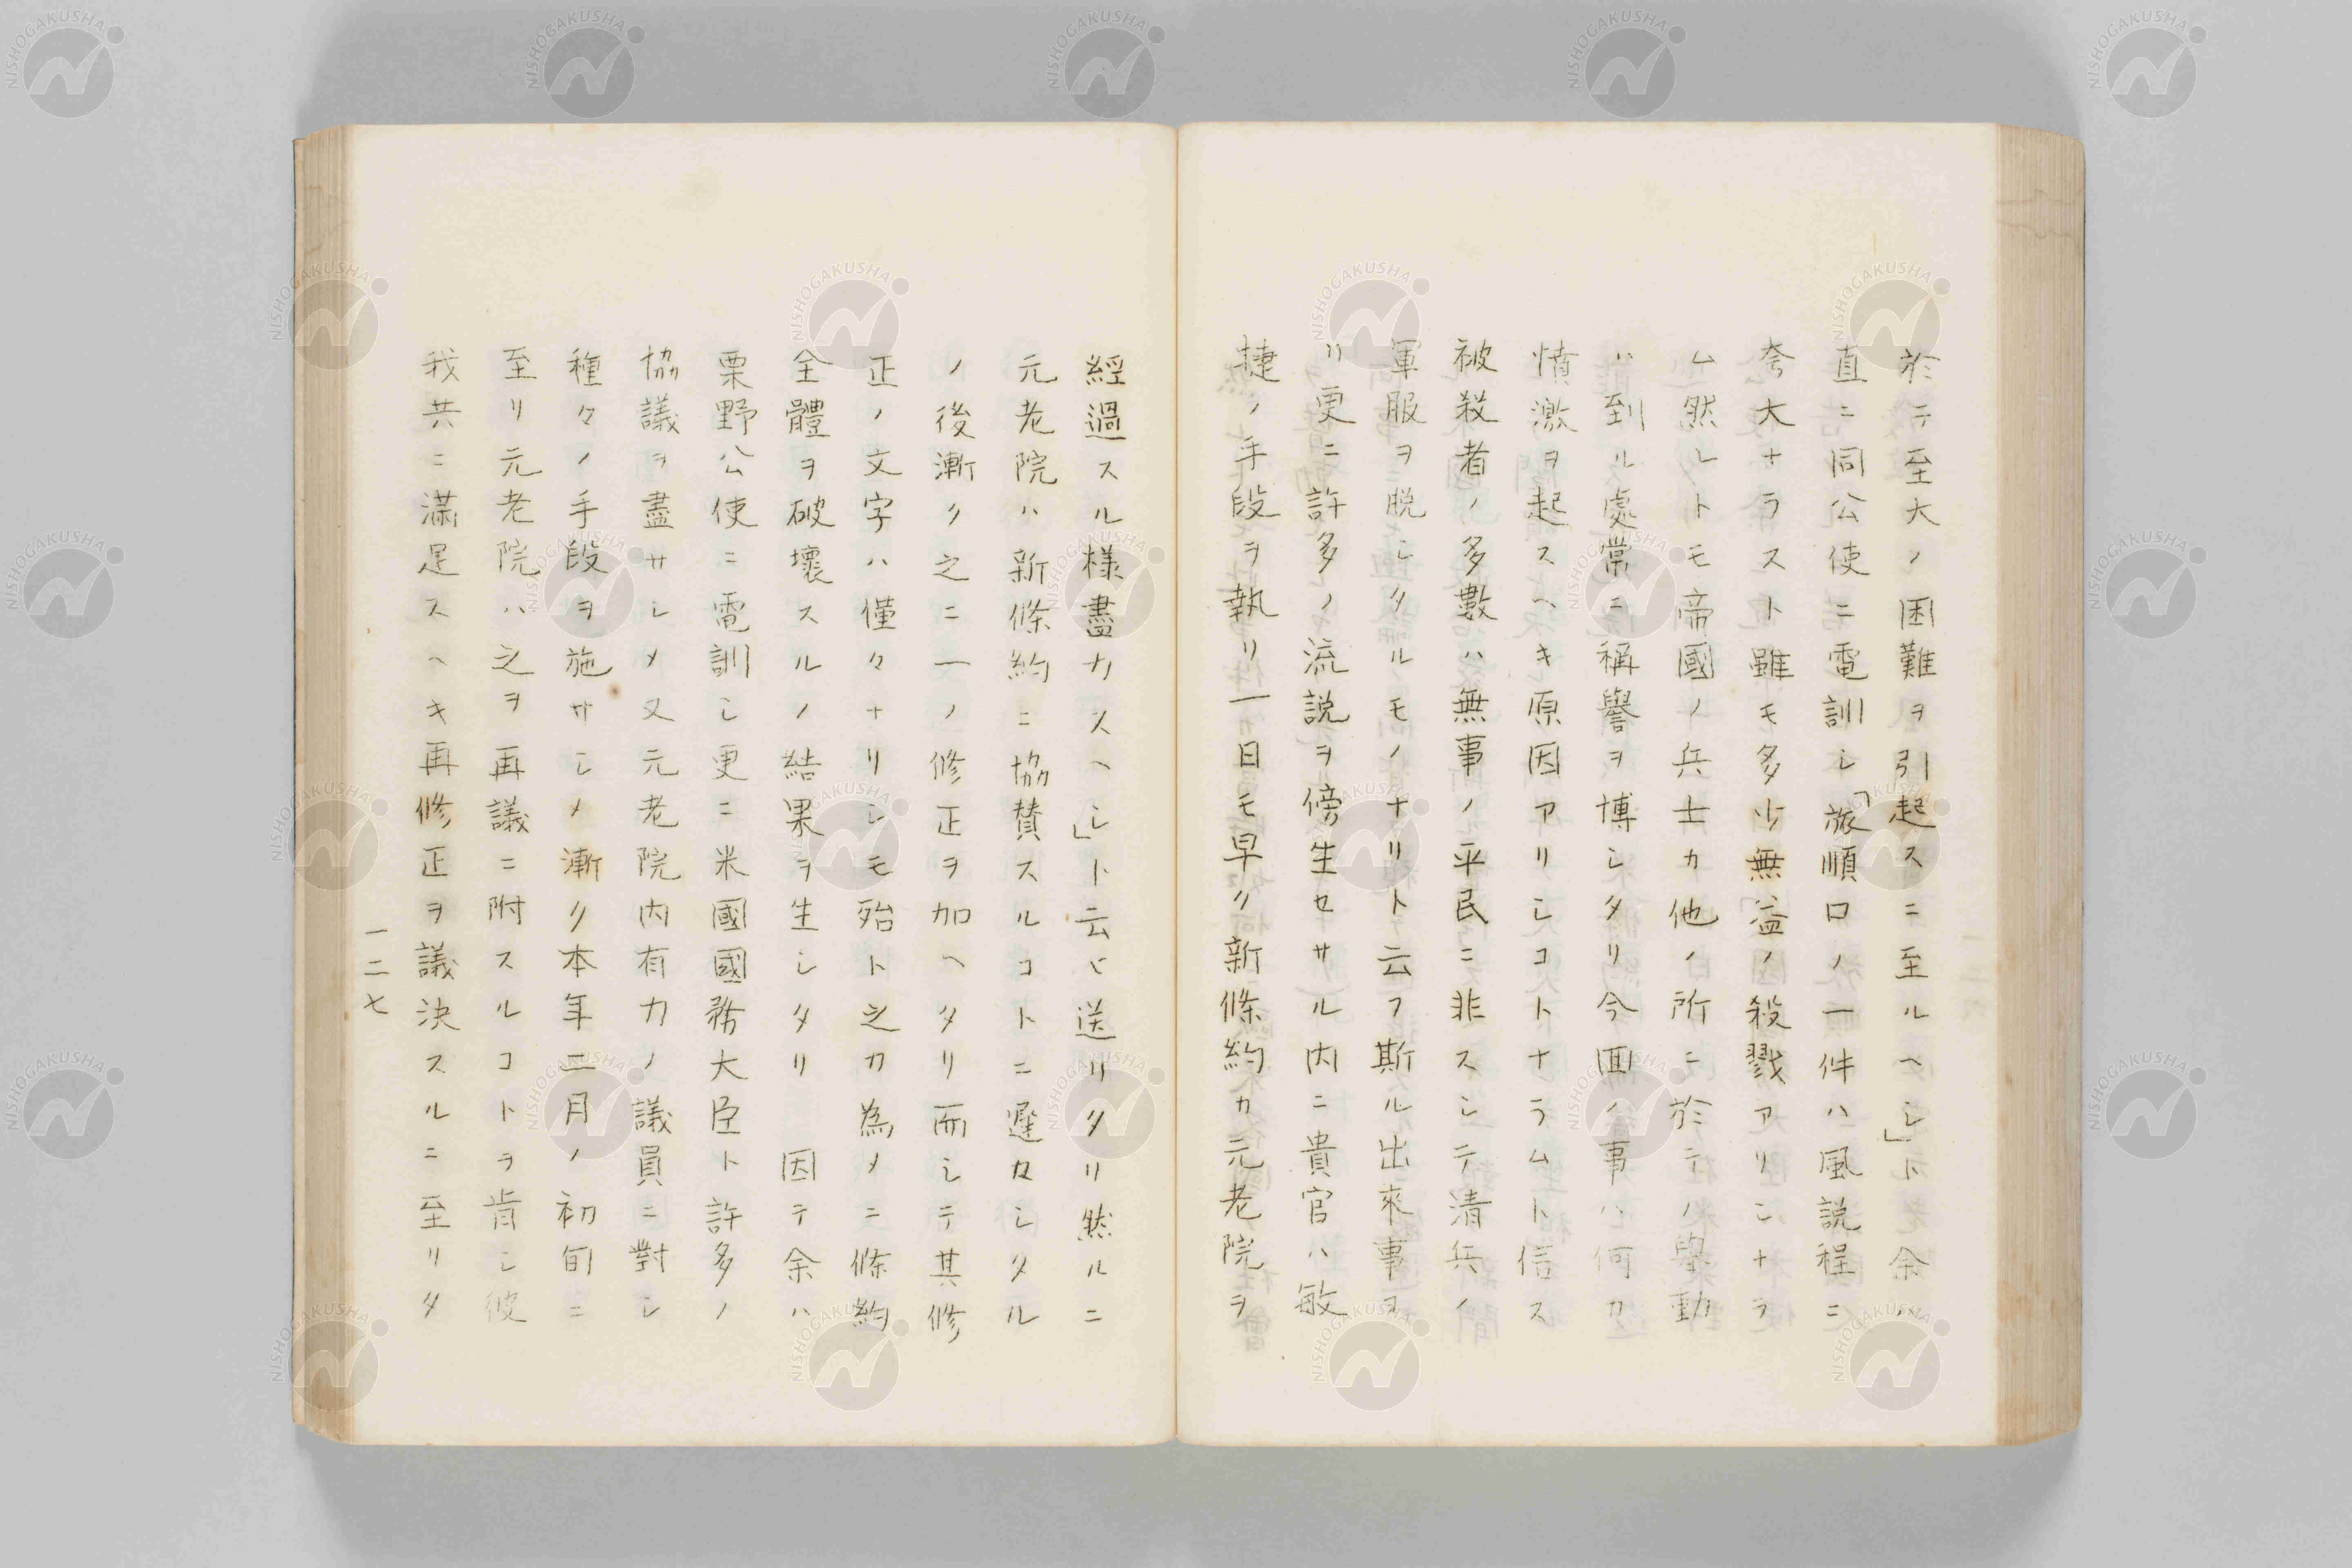 於テ至大ノ困難ヲ引起スニ至ルヘシ」ト余ハ
直ニ同公使ニ電訓シ「旅順口ノ一件ハ風説程ニ
夸大ナラスト雖モ多少無益ノ殺戮アリシナラ
ム然レトモ帝國ノ兵士カ他ノ所ニ於テノ擧動
ハ到ル處常ニ稱譽ヲ博シタリ今回ノ事ハ何カ
憤激ヲ起スヘキ原因アリシコトナラムト信ス
被殺者ノ多數ハ無事ノ平民ニ非スシテ清兵ノ
軍服ヲ脱シタルモノナリト云フ斯ル出來事ヨ
リ更ニ許多ノ流説ヲ傍生セサル内ニ貴官ハ敏
捷ノ手段ヲ執リ一日モ早ク新條約カ元老院ヲ
經過スル様盡力スヘシ」ト云ヒ送リタリ然ルニ
元老院ハ新條約ニ協賛スルコトニ遲々シタル
ノ後漸ク之ニ一ノ修正ヲ加ヘタリ而シテ其修
正ノ文字ハ僅々ナリシモ殆ト之カ為メニ條約
全體ヲ破壞スルノ結果ヲ生シタリ 因テ余ハ
栗野公使ニ電訓シ更ニ米國國務大臣ト許多ノ
協議ヲ盡サシメ又元老院内有力ノ議員ニ對シ
種々ノ手段ヲ施サシメ漸ク本年二月ノ初旬ニ
至リ元老院ハ之ヲ再議ニ附スルコトヲ肯シ彼
我共ニ滿足スヘキ再修正ヲ議決スルニ至リタ
一二七
NISHOGAKUSHA